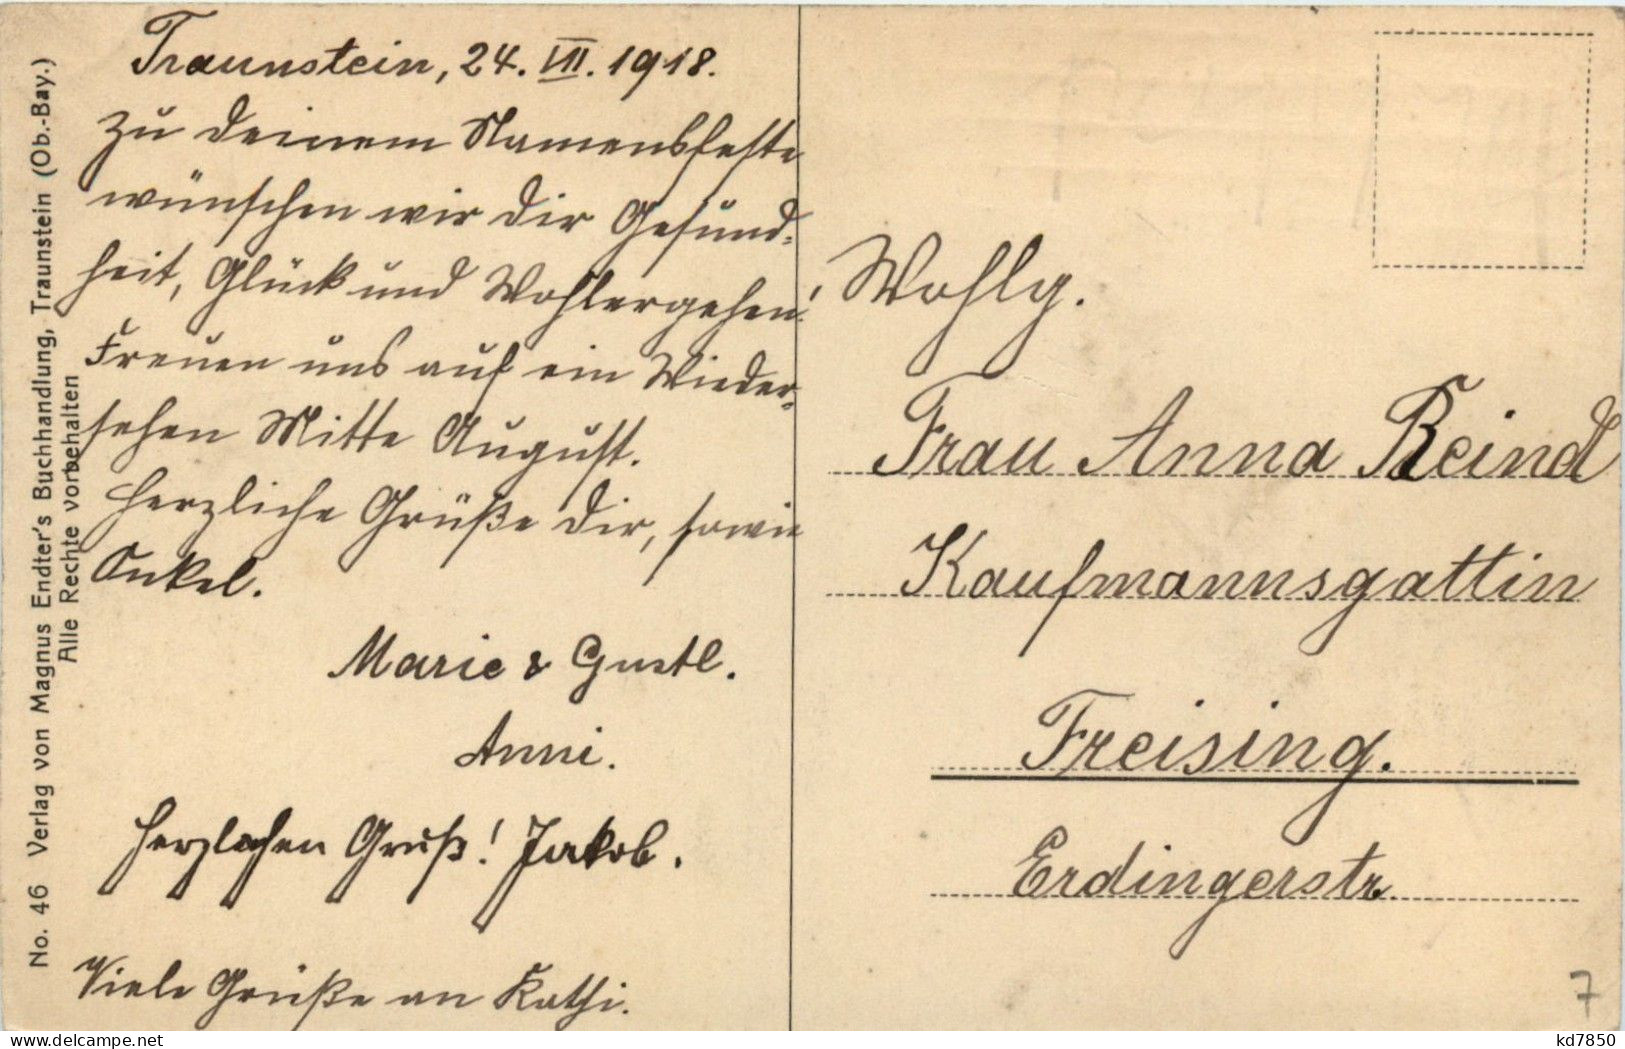 Traunstein, 24. VII. 1918.
Zu deinem Namensfeste
wünschen wir dir Gesund-
heit, Glück und Wohlergehen!
Freuen uns auf ein Wieder-
sehen Mitte August.
Herzliche Grüße dir, sowie
Onkel.
Marie & Gustl.
Anni.
Herzlichen Gruß! Jakob.
Viele Grüße an Kathi.
No. 46 Verlag von Magnus Endter's Buchhandlung, Traunstein (Ob.-Bay.)
Alle Rechte vorbehalten
Wohlg.
Frau Anna Reindl
Kaufmannsgattin
Freising.
Erdingerstr.
7
kd7850
www.delcampe.net